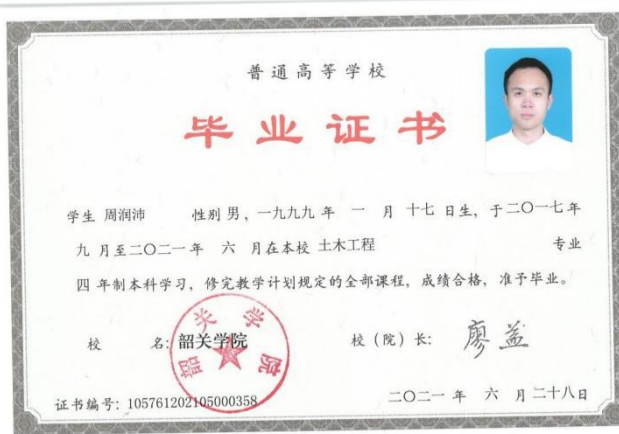 普通高等学校
毕业证书
学生 周润沛 性别 男，一九九九年 一 月 十七 日生，于二〇一七年
九 月至二〇二一年 六 月在本校 土木工程 专业
四 年制本科学习，修完教学计划规定的全部课程，成绩合格，准予毕业。
校 名：韶关学院 校（院）长：廖益
韶关学院
证书编号：105761202105000358 二〇二一 年 六 月 二十八日